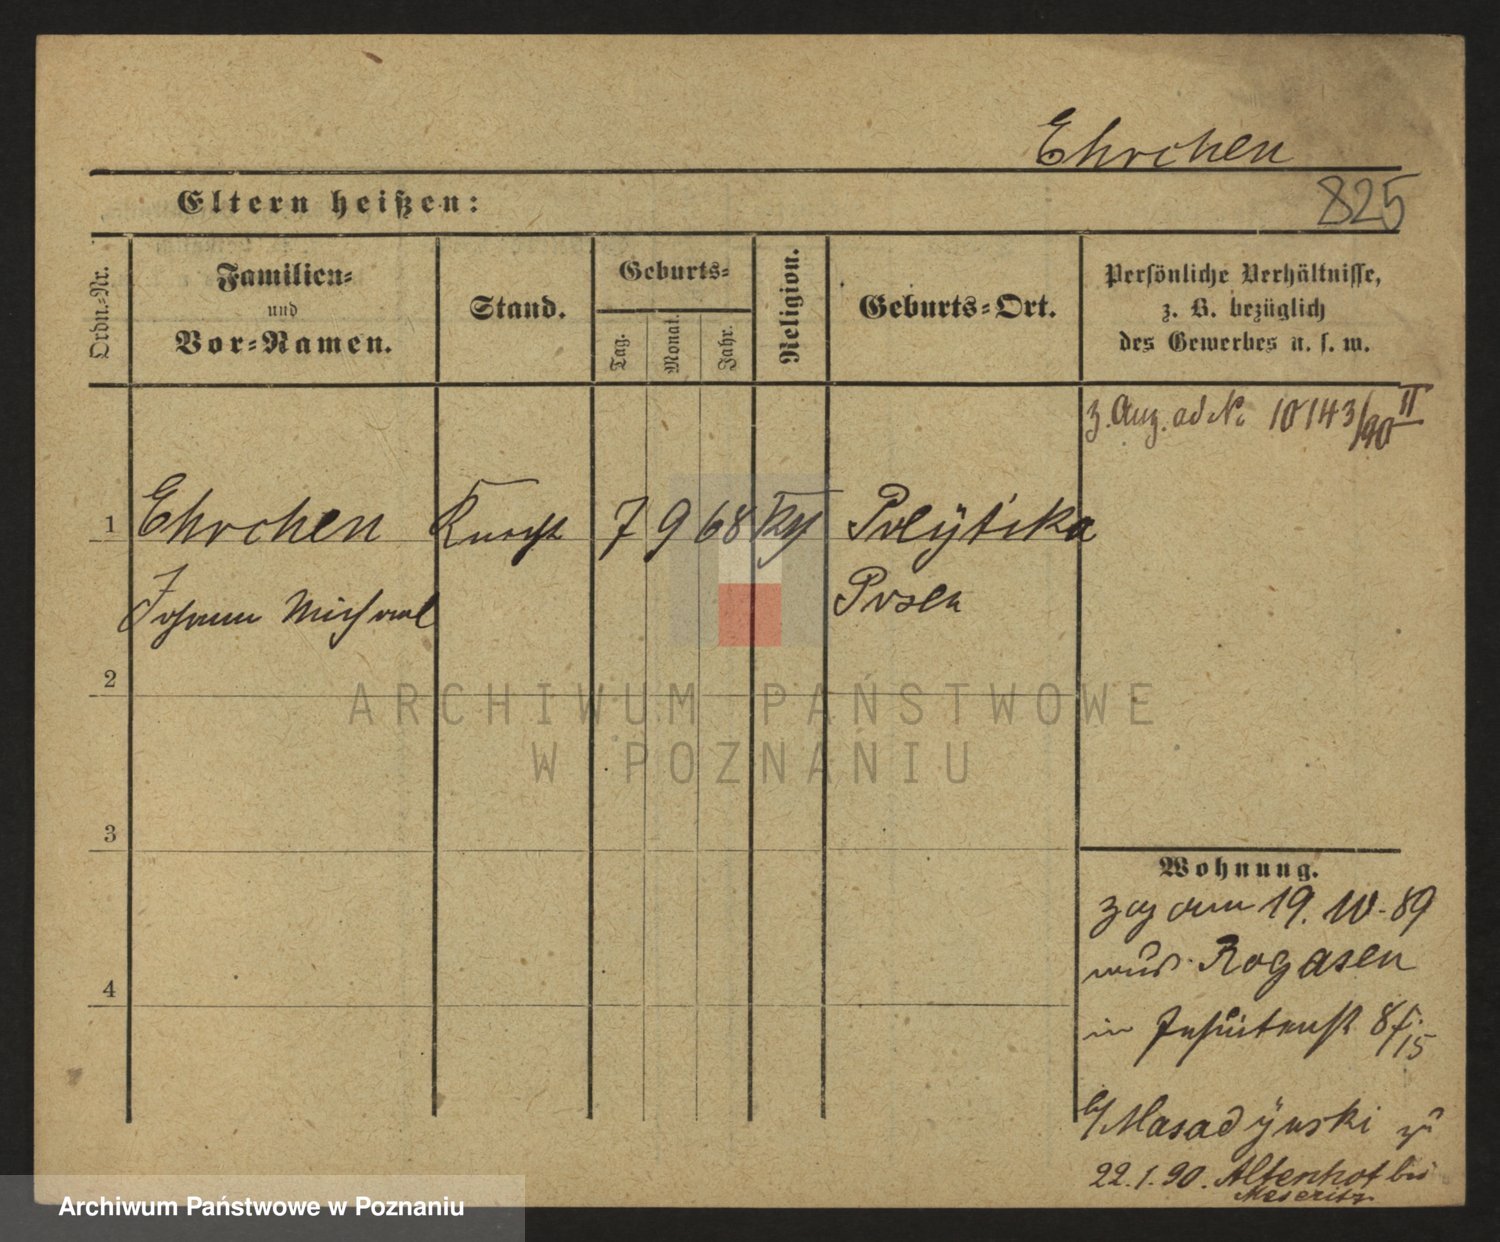 Ehrchen
Eltern heißen:
825
Ordn.-Nr.
Familien-
und
Vor-Namen.
Stand.
Geburts-
Tag.
Monat.
Jahr.
Religion.
Geburts-Ort.
Persönliche Verhältnisse,
z. B. bezüglich
des Gewerbes u. s. w.
z. Ang. ad No 10143/90 II
1 Ehrchen Knecht 7 9 68 Posen
Johann Michael
2
3
4
Wohnung.
zog am 19. 89
aus Rogasen
in 8 15
22.1.90. Altenhof bei
Meseritz
ARCHIWUM PAŃSTWOWE
W POZNANIU
Archiwum Państwowe w Poznaniu